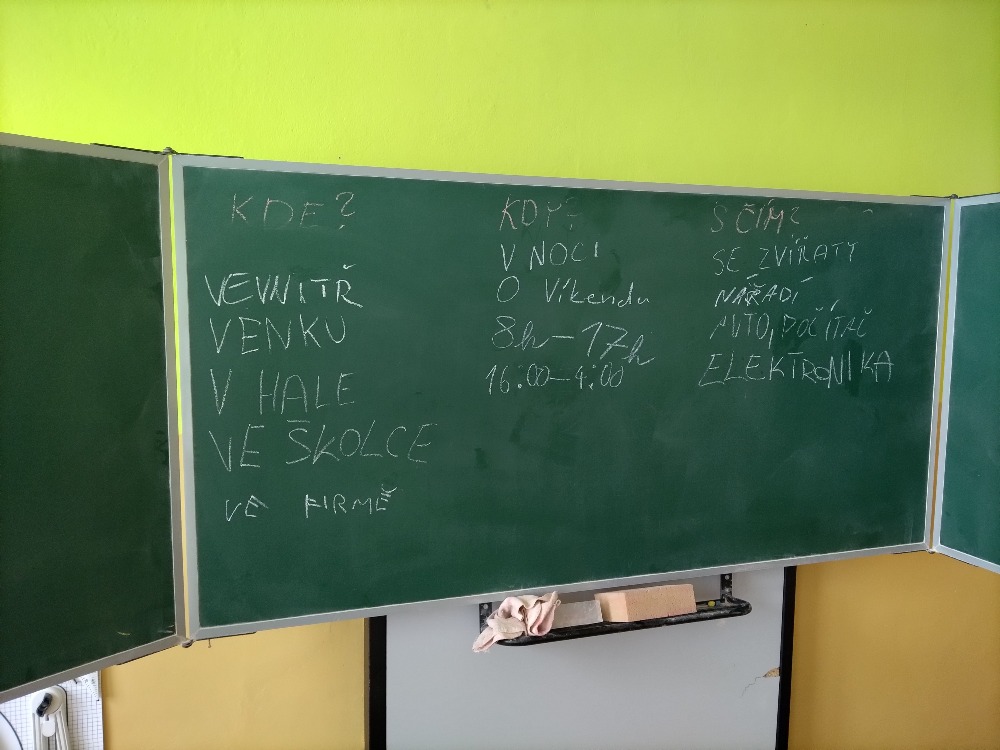 KDE?
VEVNITŘ
VENKU
V HALE
VE ŠKOLCE
VE FIRMĚ
KDY?
V NOCI
O Víkendu
8h-17h
16:00-4:00
S ČÍM?
SE ZVÍŘATY
NÁŘADÍ
AUTO, POČÍTAČ
ELEKTRONIKA